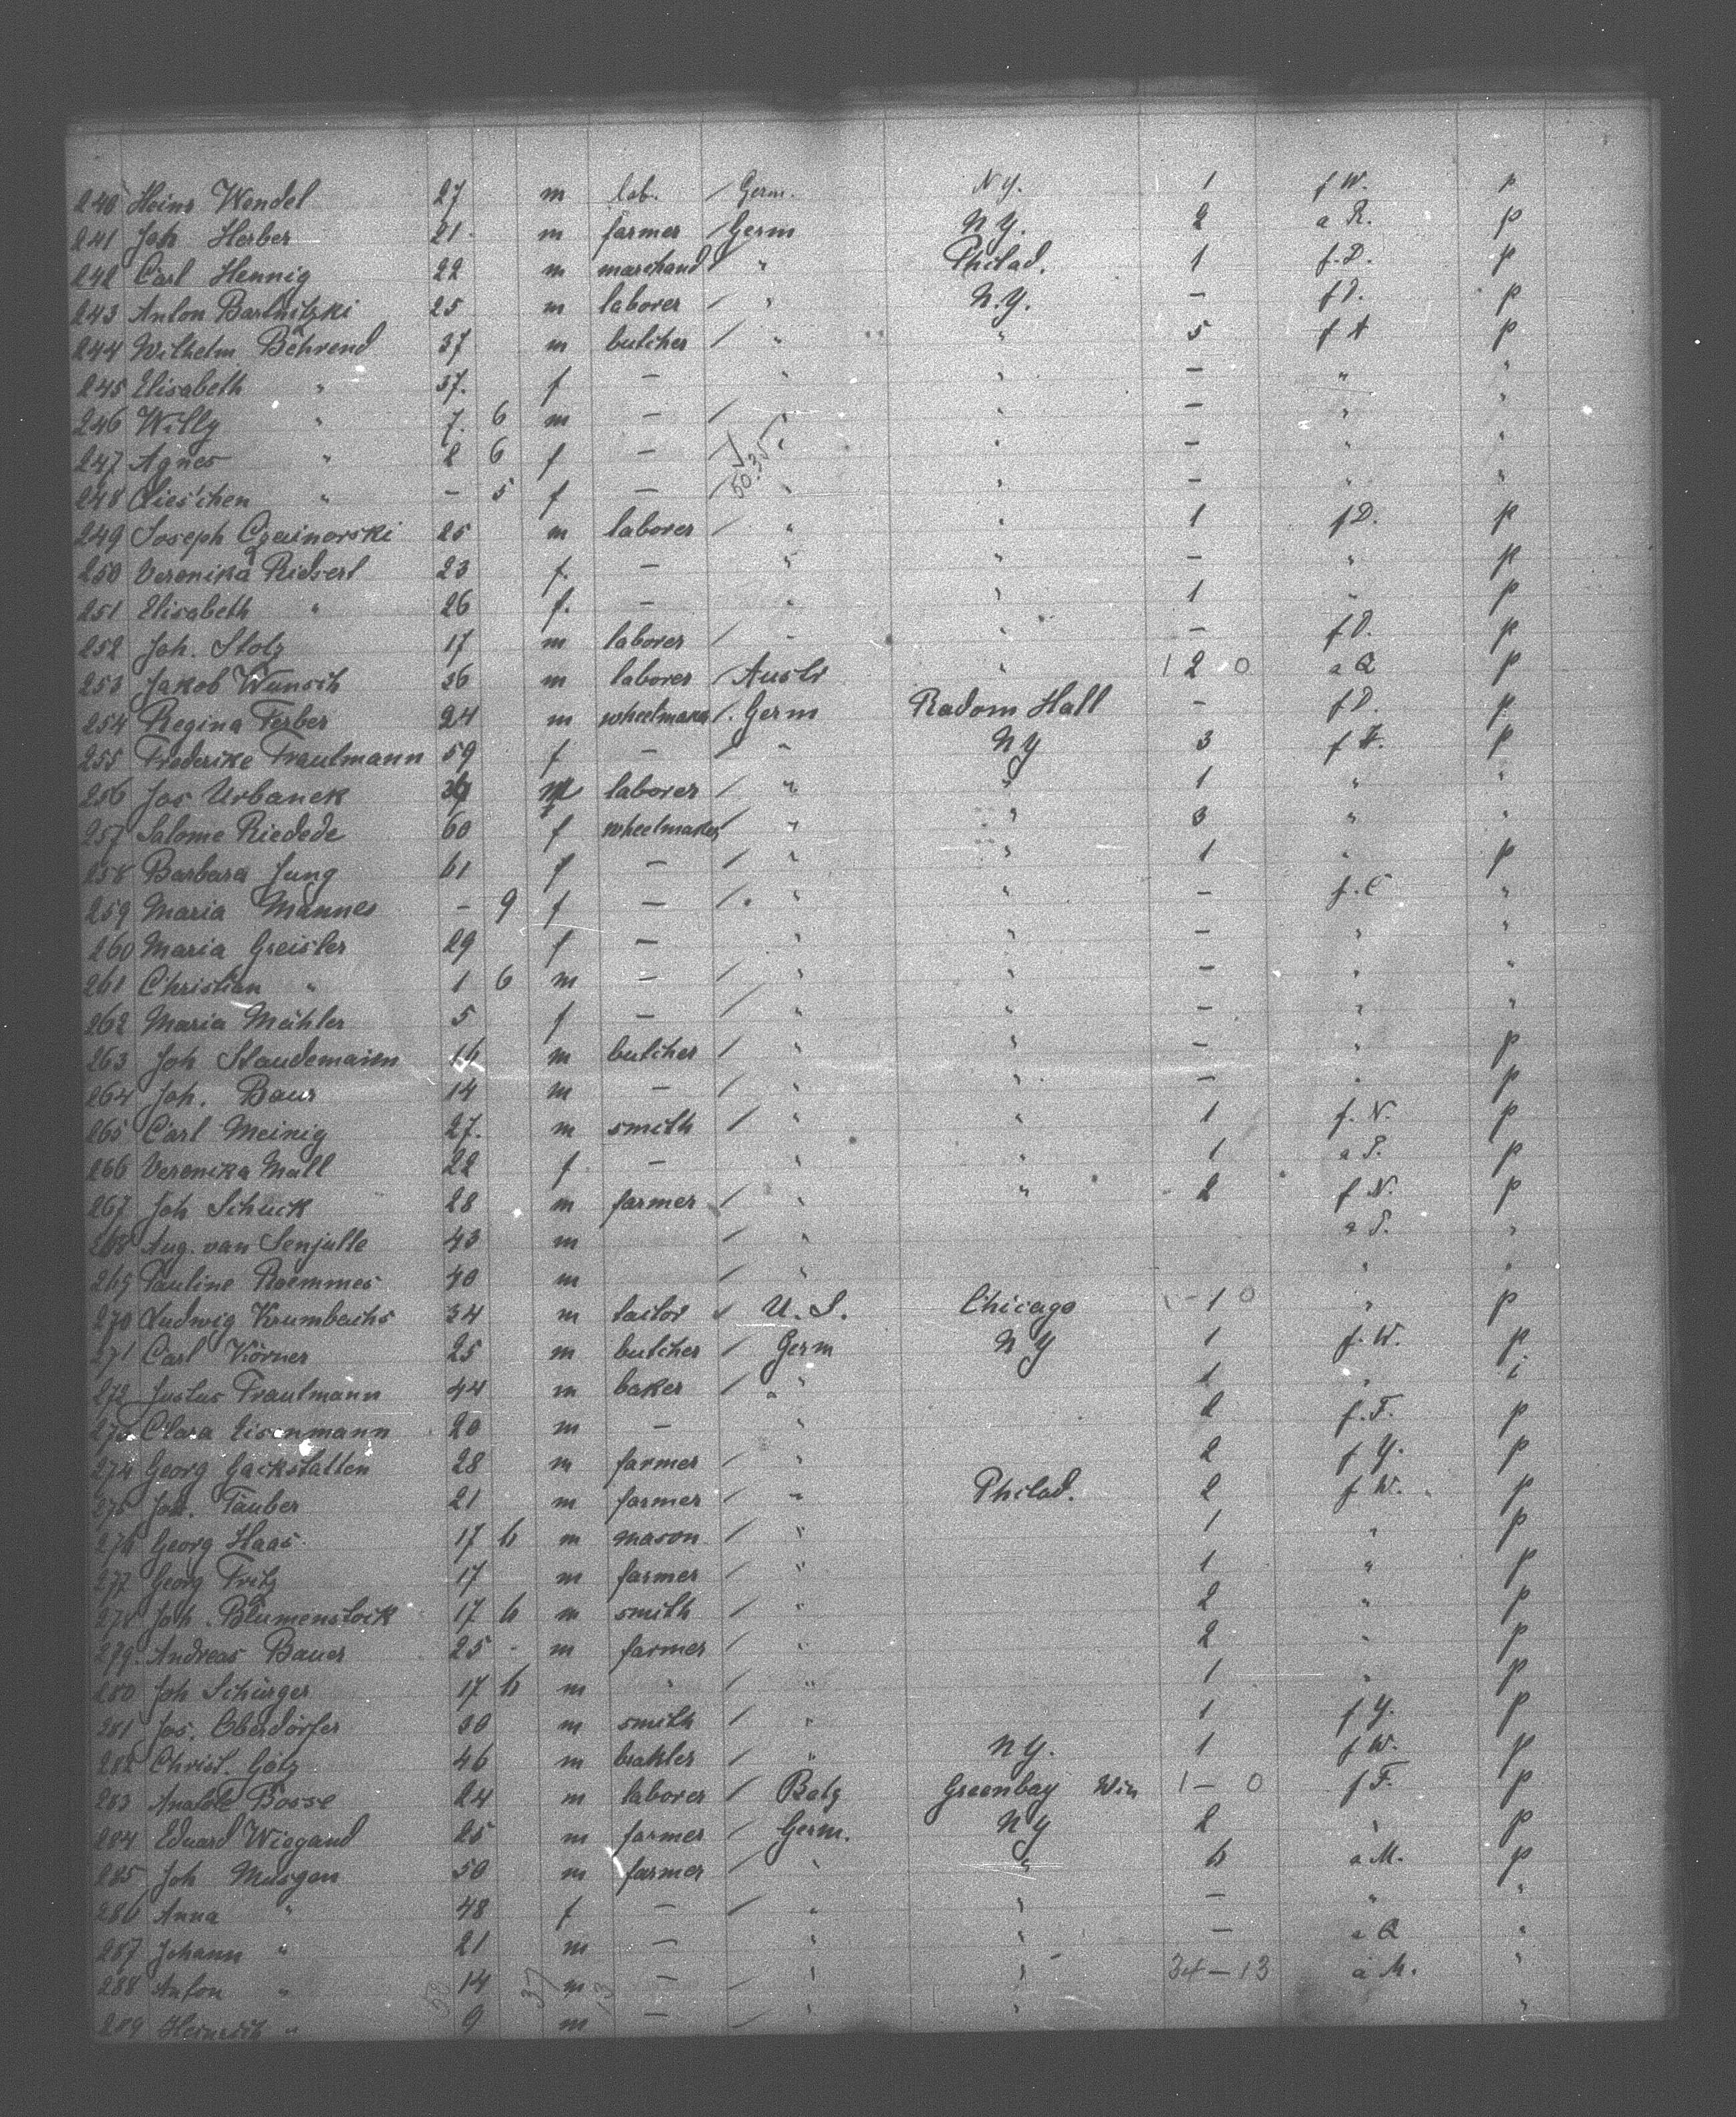 240 Heinr Wendel 27 m lab. / Germ. N.Y. 1 f W. p
241 Joh Herber 21 m farmer / Germ N.Y. 2 a R. p
242 Carl Hennig 22 m marchand / " Philad. 1 f. D. p
243 Anton Bartnitzki 25 m laborer / " N.Y. - f D. p
244 Wilhelm Behrend 37 m butcher / " " 5 f A p
245 Elisabeth " 37. f - " " - " "
246 Willy " 7. 6 m - / " " - " "
247 Agnes " 2 6 f - / " " - " "
248 Lies'chen " - 5 f - / " " - " "
249 Joseph Czainorski 25 m laborer / " " 1 f D. p
250 Veronika Riedserl 23 f - " " - " p
251 Elisabeth " 26 f. - " " 1 " p
252 Joh. Stolz 17 m laborer / " " - f D. p
253 Jakob Wunsch 36 m laborer / Austr " 1 2 0 a Q p
254 Regina Ferber 24 m wheelmaker / Germ Radom Hall - f D. p
255 Frederike Trautmann 59 f - / " N Y 3 f p
256 Jos Urbanek m laborer / " " 1 " "
257 Salome Riedede 60 f wheelmaker / " " 3 " "
258 Barbara Jung 61 f - / " " 1 " p
259 Maria Mannes - 9 f - / " " - f. C "
260 Maria Greisler 29 f - " " - " "
261 Christian " 1 6 m - / " " - " "
262 Maria Mechler 5 f - / " " - " "
263 Joh Staudemaien 16 m butcher / " " - " p
264 Joh. Baur 14 m - / " " - " p
265 Carl Meinig 27. m smith / " " 1 f. N. p
266 Veronika Mall 22 f - " " 1 a P. p
267 Joh Schuck 28 m farmer / " " 2 f N. p
268 Aug. van Senjulle 43 m / " a P. "
269 Pauline Raemmes 40 m / " " "
270 Ludwig Krumbachs 34 m tailor / U. S. Chicago - 1 0 " p
271 Carl Körner 25 m butcher / Germ N Y 1 f. W. p
272 Justus Trautmann 44 m baker / " 1 " i
273 Clara Eisenmann 20 m - " 2 f. F. p
274 Georg Gackstatten 28 m farmer / " 2 f Y. p
275 Joh. Tauber 21 m farmer / " Philad. 2 f W. p
276 Georg Haas 17 6 m mason / " 1 " p
277 Georg Fritz 17 m farmer / " 1 " p
278 Joh. Blumenstock 17 6 m smith / " 2 " p
279 Andreas Bauer 25 - m farmer / " 2 " p
280 Joh Schürger 17 6 m " / " 1 " p
281 Jos. Oberdörfer 30 m smith / " 1 f Y. p
282 Christ. Götz 46 m / " N Y. 1 f W. p
283 Anatole Bosse 24 m laborer / Belg Greenbay Win 1 - 0 f F. p
284 Eduard Wiegand 25 m farmer / Germ. N Y 2 " p
285 Joh Musgen 50 m farmer / " " 6 a M. p
286 Anna " 48 f - / " " - " "
287 Johann " 21 m - " " - a Q "
288 Anton " 14 m - / " " 34-13 a M. "
289 Heinrich " 9 m - / " " "
50.35
37
13